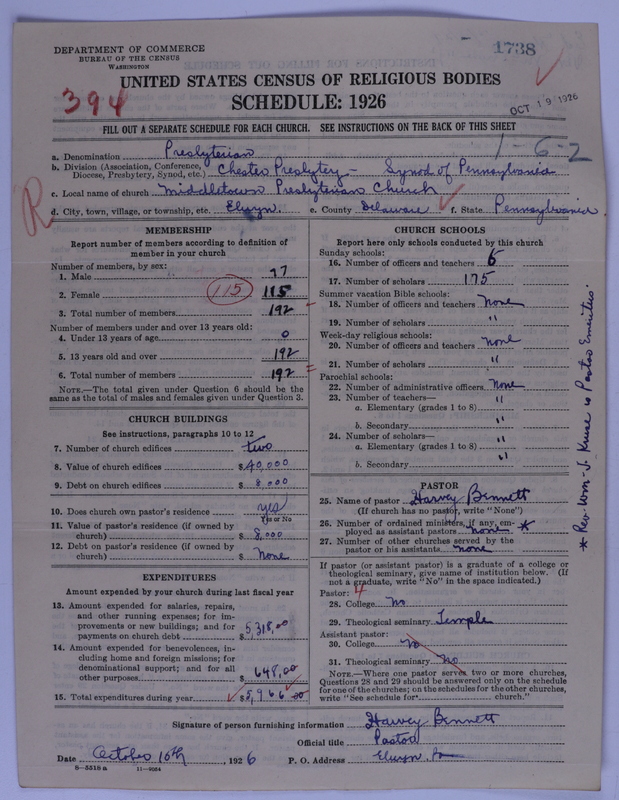 DEPARTMENT OF COMMERCE
BUREAU OF THE CENSUS
WASHINGTON
1738
UNITED STATES CENSUS OF RELIGIOUS BODIES
394
SCHEDULE: 1926
OCT 19 1926
FILL OUT A SEPARATE SCHEDULE FOR EACH CHURCH. SEE INSTRUCTIONS ON THE BACK OF THIS SHEET
1-6-2
a. Denomination Presbyterian
b. Division (Association, Conference, Diocese, Presbytery, Synod, etc.) Chester Presbytery - Synod of Pennsylvania
c. Local name of church Middletown Presbyterian Church
R
d. City, town, village, or township, etc. Elwyn. e. County Delaware f. State Pennsylvania
MEMBERSHIP
Report number of members according to definition of
member in your church
Number of members, by sex:
1. Male 77
2. Female 115 115
3. Total number of members 192
Number of members under and over 13 years old:
4. Under 13 years of age 0
5. 13 years old and over 192
6. Total number of members 192
NOTE.—The total given under Question 6 should be the
same as the total of males and females given under Question 3.
CHURCH BUILDINGS
See instructions, paragraphs 10 to 12
7. Number of church edifices two
8. Value of church edifices $40,000
9. Debt on church edifices $8,000
10. Does church own pastor's residence yes
Yes or No
11. Value of pastor's residence (if owned by
church) $8,000
12. Debt on pastor's residence (if owned by
church) $None
EXPENDITURES
Amount expended by your church during last fiscal year
13. Amount expended for salaries, repairs,
and other running expenses; for im-
provements or new buildings; and for
payments on church debt $5,318.00
14. Amount expended for benevolences, in-
cluding home and foreign missions; for
denominational support; and for all
other purposes $648.00
15. Total expenditures during year $5,966.00
CHURCH SCHOOLS
Report here only schools conducted by this church
Sunday schools:
16. Number of officers and teachers 6
17. Number of scholars 175
Summer vacation Bible schools:
18. Number of officers and teachers None
19. Number of scholars "
Week-day religious schools:
20. Number of officers and teachers None
21. Number of scholars "
Parochial schools:
22. Number of administrative officers None
23. Number of teachers—
a. Elementary (grades 1 to 8) "
b. Secondary "
24. Number of scholars—
a. Elementary (grades 1 to 8) "
b. Secondary "
PASTOR
25. Name of pastor Harvey Bennett
(If church has no pastor, write "None")
26. Number of ordained ministers, if any, em-
ployed as assistant pastors none *
27. Number of other churches served by the
pastor or his assistants none
If pastor (or assistant pastor) is a graduate of a college or
theological seminary, give name of institution below. (If
not a graduate, write "No" in the space indicated.)
Pastor: 4
28. College No
29. Theological seminary Temple
Assistant pastor:
30. College No
31. Theological seminary No
NOTE.—Where one pastor serves two or more churches,
Questions 28 and 29 should be answered only on the schedule
for one of the churches; on the schedules for the other churches,
write "See schedule for church."
* Rev. Wm. J. Kruse is Pastor Emeritus.
Signature of person furnishing information Harvey Bennett
Official title Pastor
Date October 16th, 1926 P. O. Address Elwyn Pa
8-5518a 11-9034